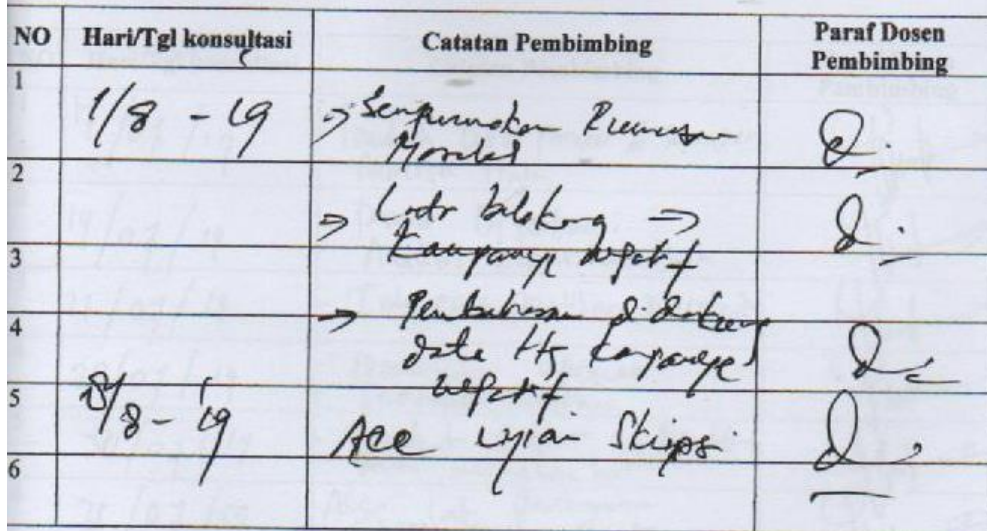 NO Hari/Tgl konsultasi Catatan Pembimbing Paraf Dosen Pembimbing
1 1/8 - 19 → Sempurnakan Rumusan
Masalah
2 → Latar belakang →
3 Kampanye negatif
4 → Pembahasan didukung
data ttg kampanye
negatif
5 8/8 - 19 Acc ujian Skripsi
6